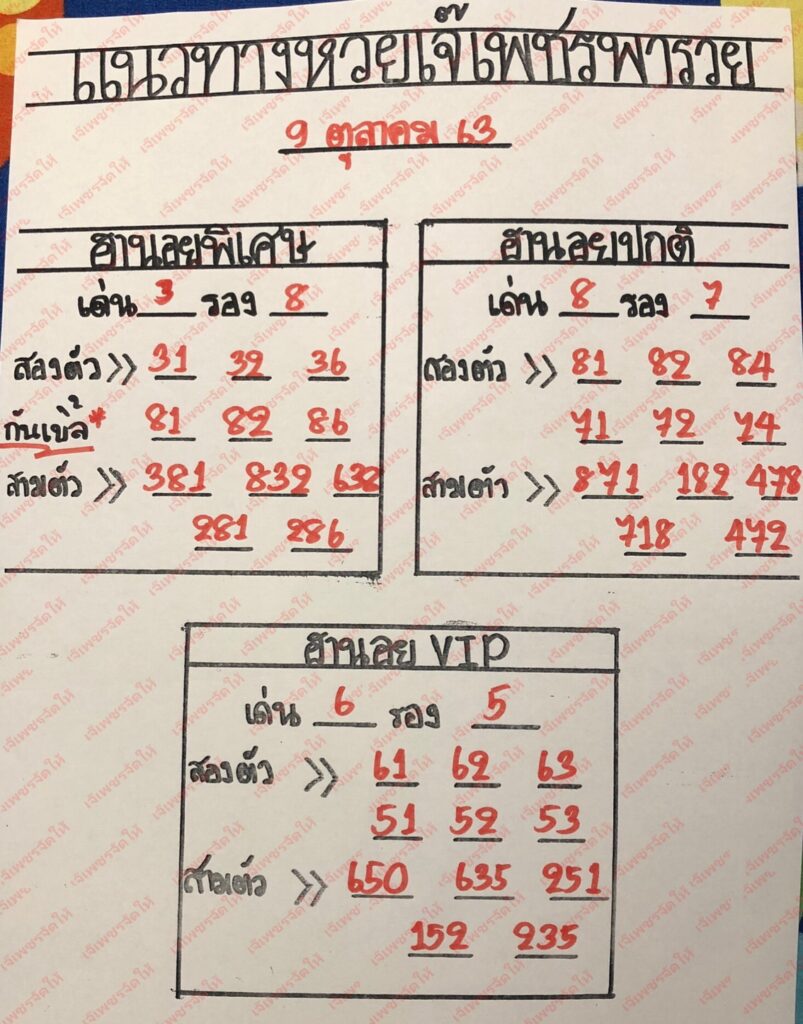 แนวทางหวยเจ๊เพชรพารวย
9 ตุลาคม 63
ฮานอยพิเศษ
เด่น 3 รอง 8
สองตัว >> 31 32 36
กันเบิ้ล* 81 82 86
สามตัว >> 381 832 632
281 286
ฮานอยปกติ
เด่น 8 รอง 7
สองตัว >> 81 82 84
71 72 74
สามตัว >> 871 182 478
718 472
ฮานอย VIP
เด่น 6 รอง 5
สองตัว >> 61 62 63
51 52 53
สามตัว >> 650 635 251
152 235
เจ๊เพชรจัดให้